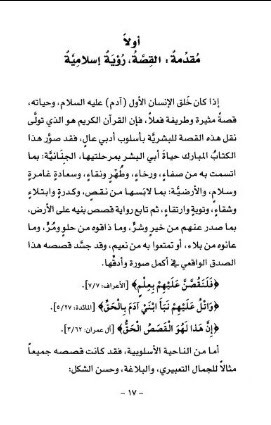 أولاً
مُقدِّمةٌ : القِصَّةُ، رُؤيَةٌ إسلاميَّةٌ
إذا كان خُلق الإنسان الأول (آدم) عليه السلام، وحياته،
قصةً مثيرة وطريفة فعلاً، فإن القرآن الكريم هو الذي تولَّى
نقل هذه القصة للبشريَّة بأسلوب أدبي عال، فقد صوَّر هذا
الكتابُ المبارك حياةَ أبي البشر بمرحلتيها، الجِنَانيَّة: بما
اتسمت به من صفاءٍ، ورخاءٍ، وطُهرٍ ونقاءٍ، وسعادةٍ غامرةٍ
وسلامٍ، والأرضيَّة: بما لابَسها من نقـصٍ، وكدرةٍ وابتلاءٍ
وشقاءٍ، وتوبةٍ وارتقاءٍ، ثم تابع رواية قصص بنيه على الأرض،
بما صدر عنهم من خيرٍ وشرٍّ، وما ذاقوه من حلوٍ ومُرٍّ، وما
عانوه من بلاء، أو تمتعوا به من نعيم، وقد جسَّد قصصه هذا
الصدق الواقعي في أكمل صورة وأدقِّها.
﴿فَلَنَقُصَّنَّ عَلَيْهِم بِعِلْمٍ﴾ [الأعراف: ٧/٧].
﴿وَاتْلُ عَلَيْهِمْ نَبَأَ ابْنَيْ آدَمَ بِالْحَقِّ﴾ [المائدة: ٥/٢٧].
﴿إِنَّ هَذَا لَهُوَ الْقَصَصُ الْحَقُّ﴾ [آل عمران: ٣/٦٢].
أما من الناحية الأسلوبية، فقد كانت قصصه جميعاً
مثالاً للجمال التعبيري، والبلاغة، وحسن الشكل:
- ١٧ -